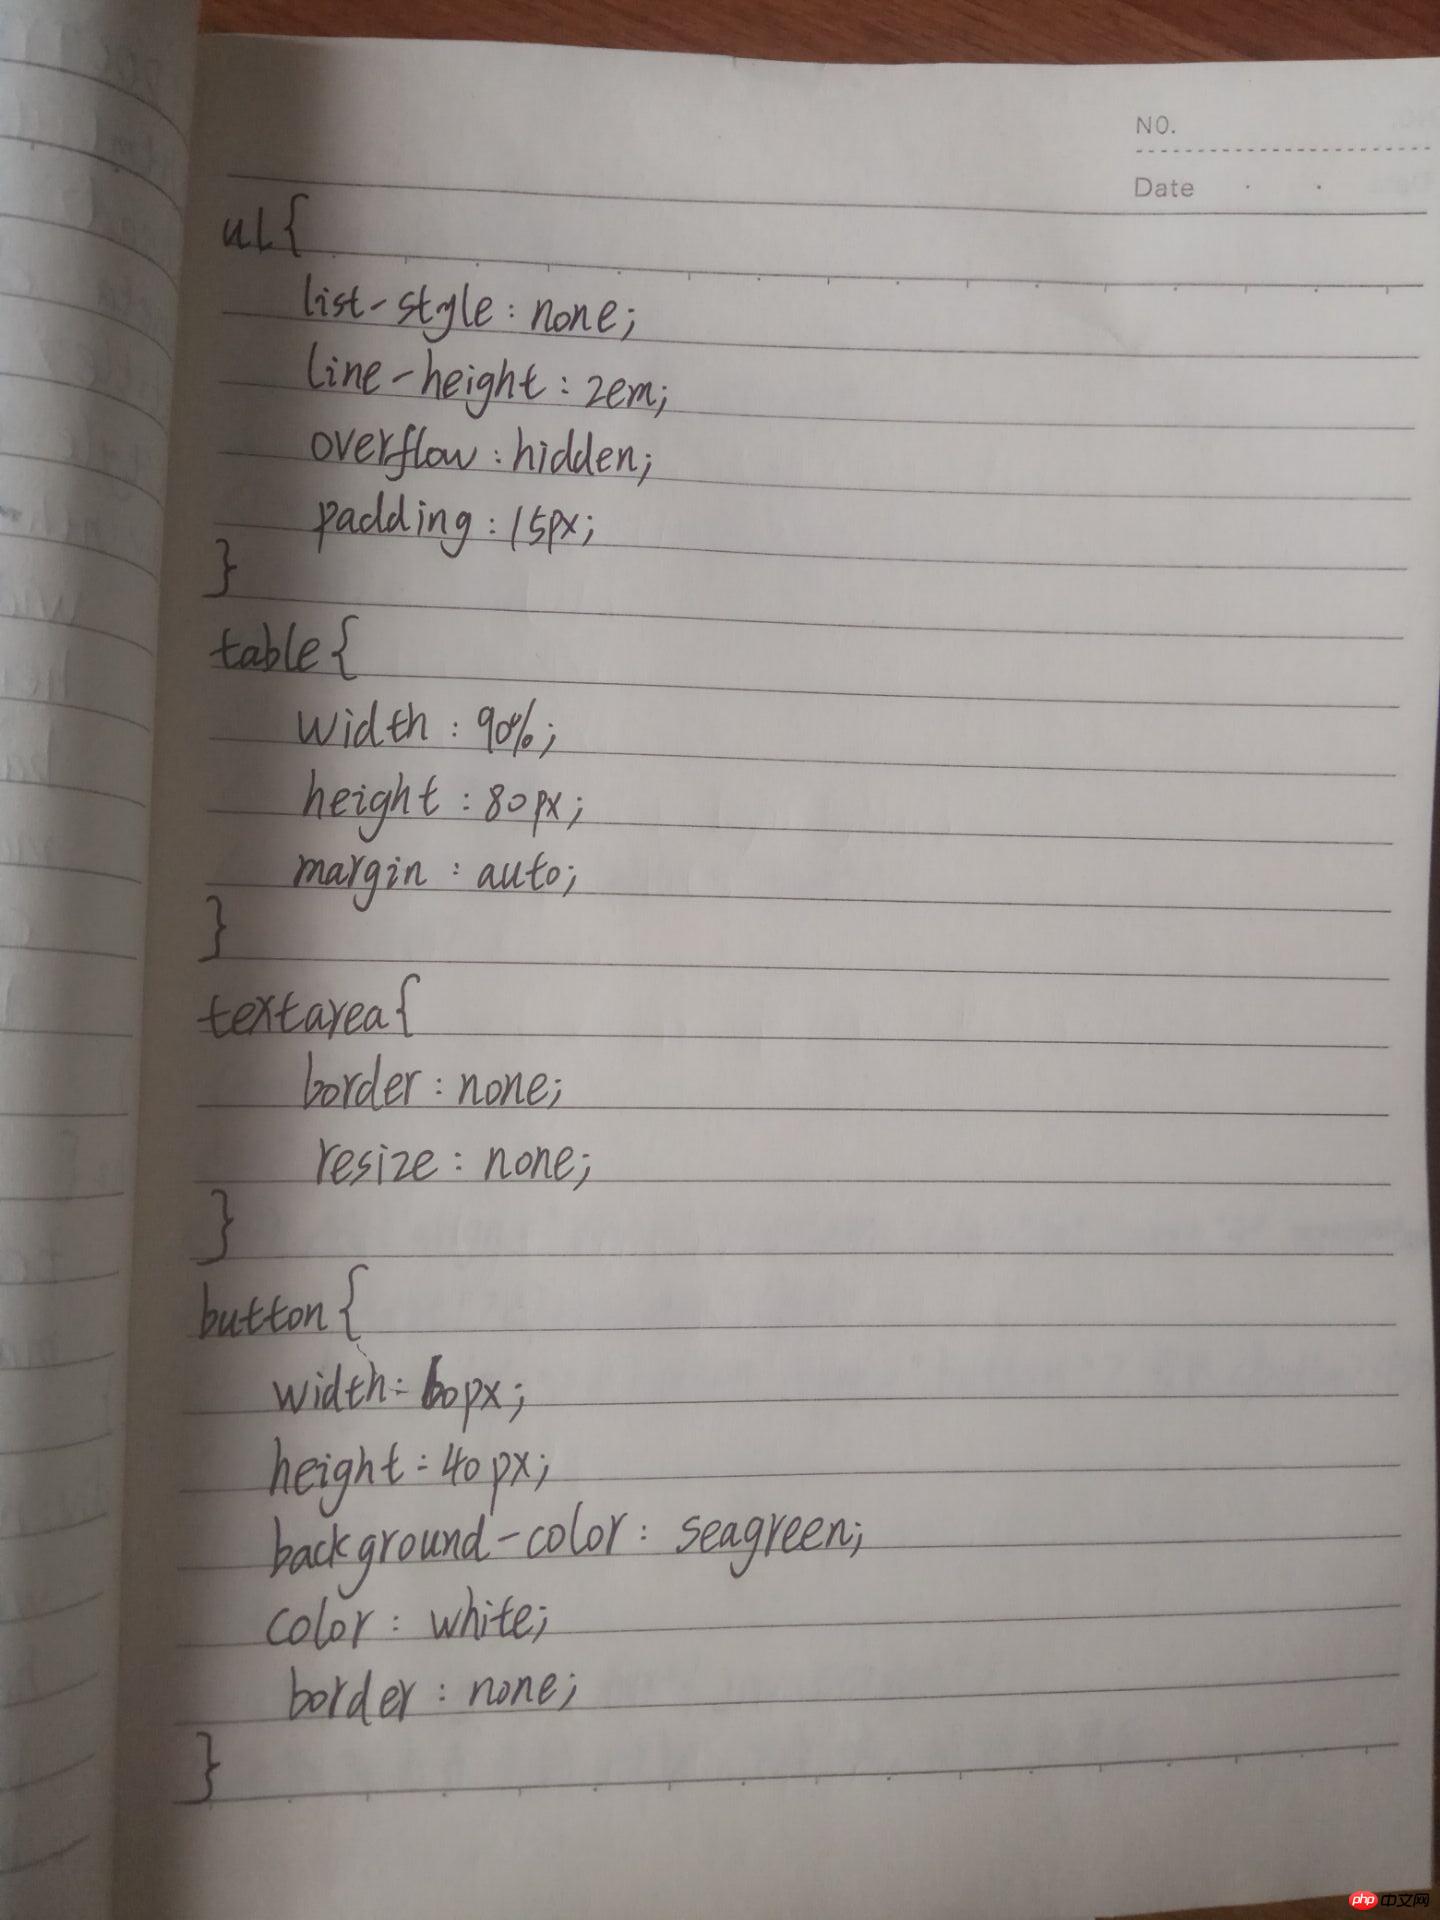 NO.
Date
ul{
list-style: none;
line-height: 2em;
overflow: hidden;
padding: 15px;
}
table{
width: 90%;
height: 80px;
margin: auto;
}
textarea{
border: none;
resize: none;
}
button{
width: 60px;
height: 40px;
background-color: seagreen;
color: white;
border: none;
}
php 中文网